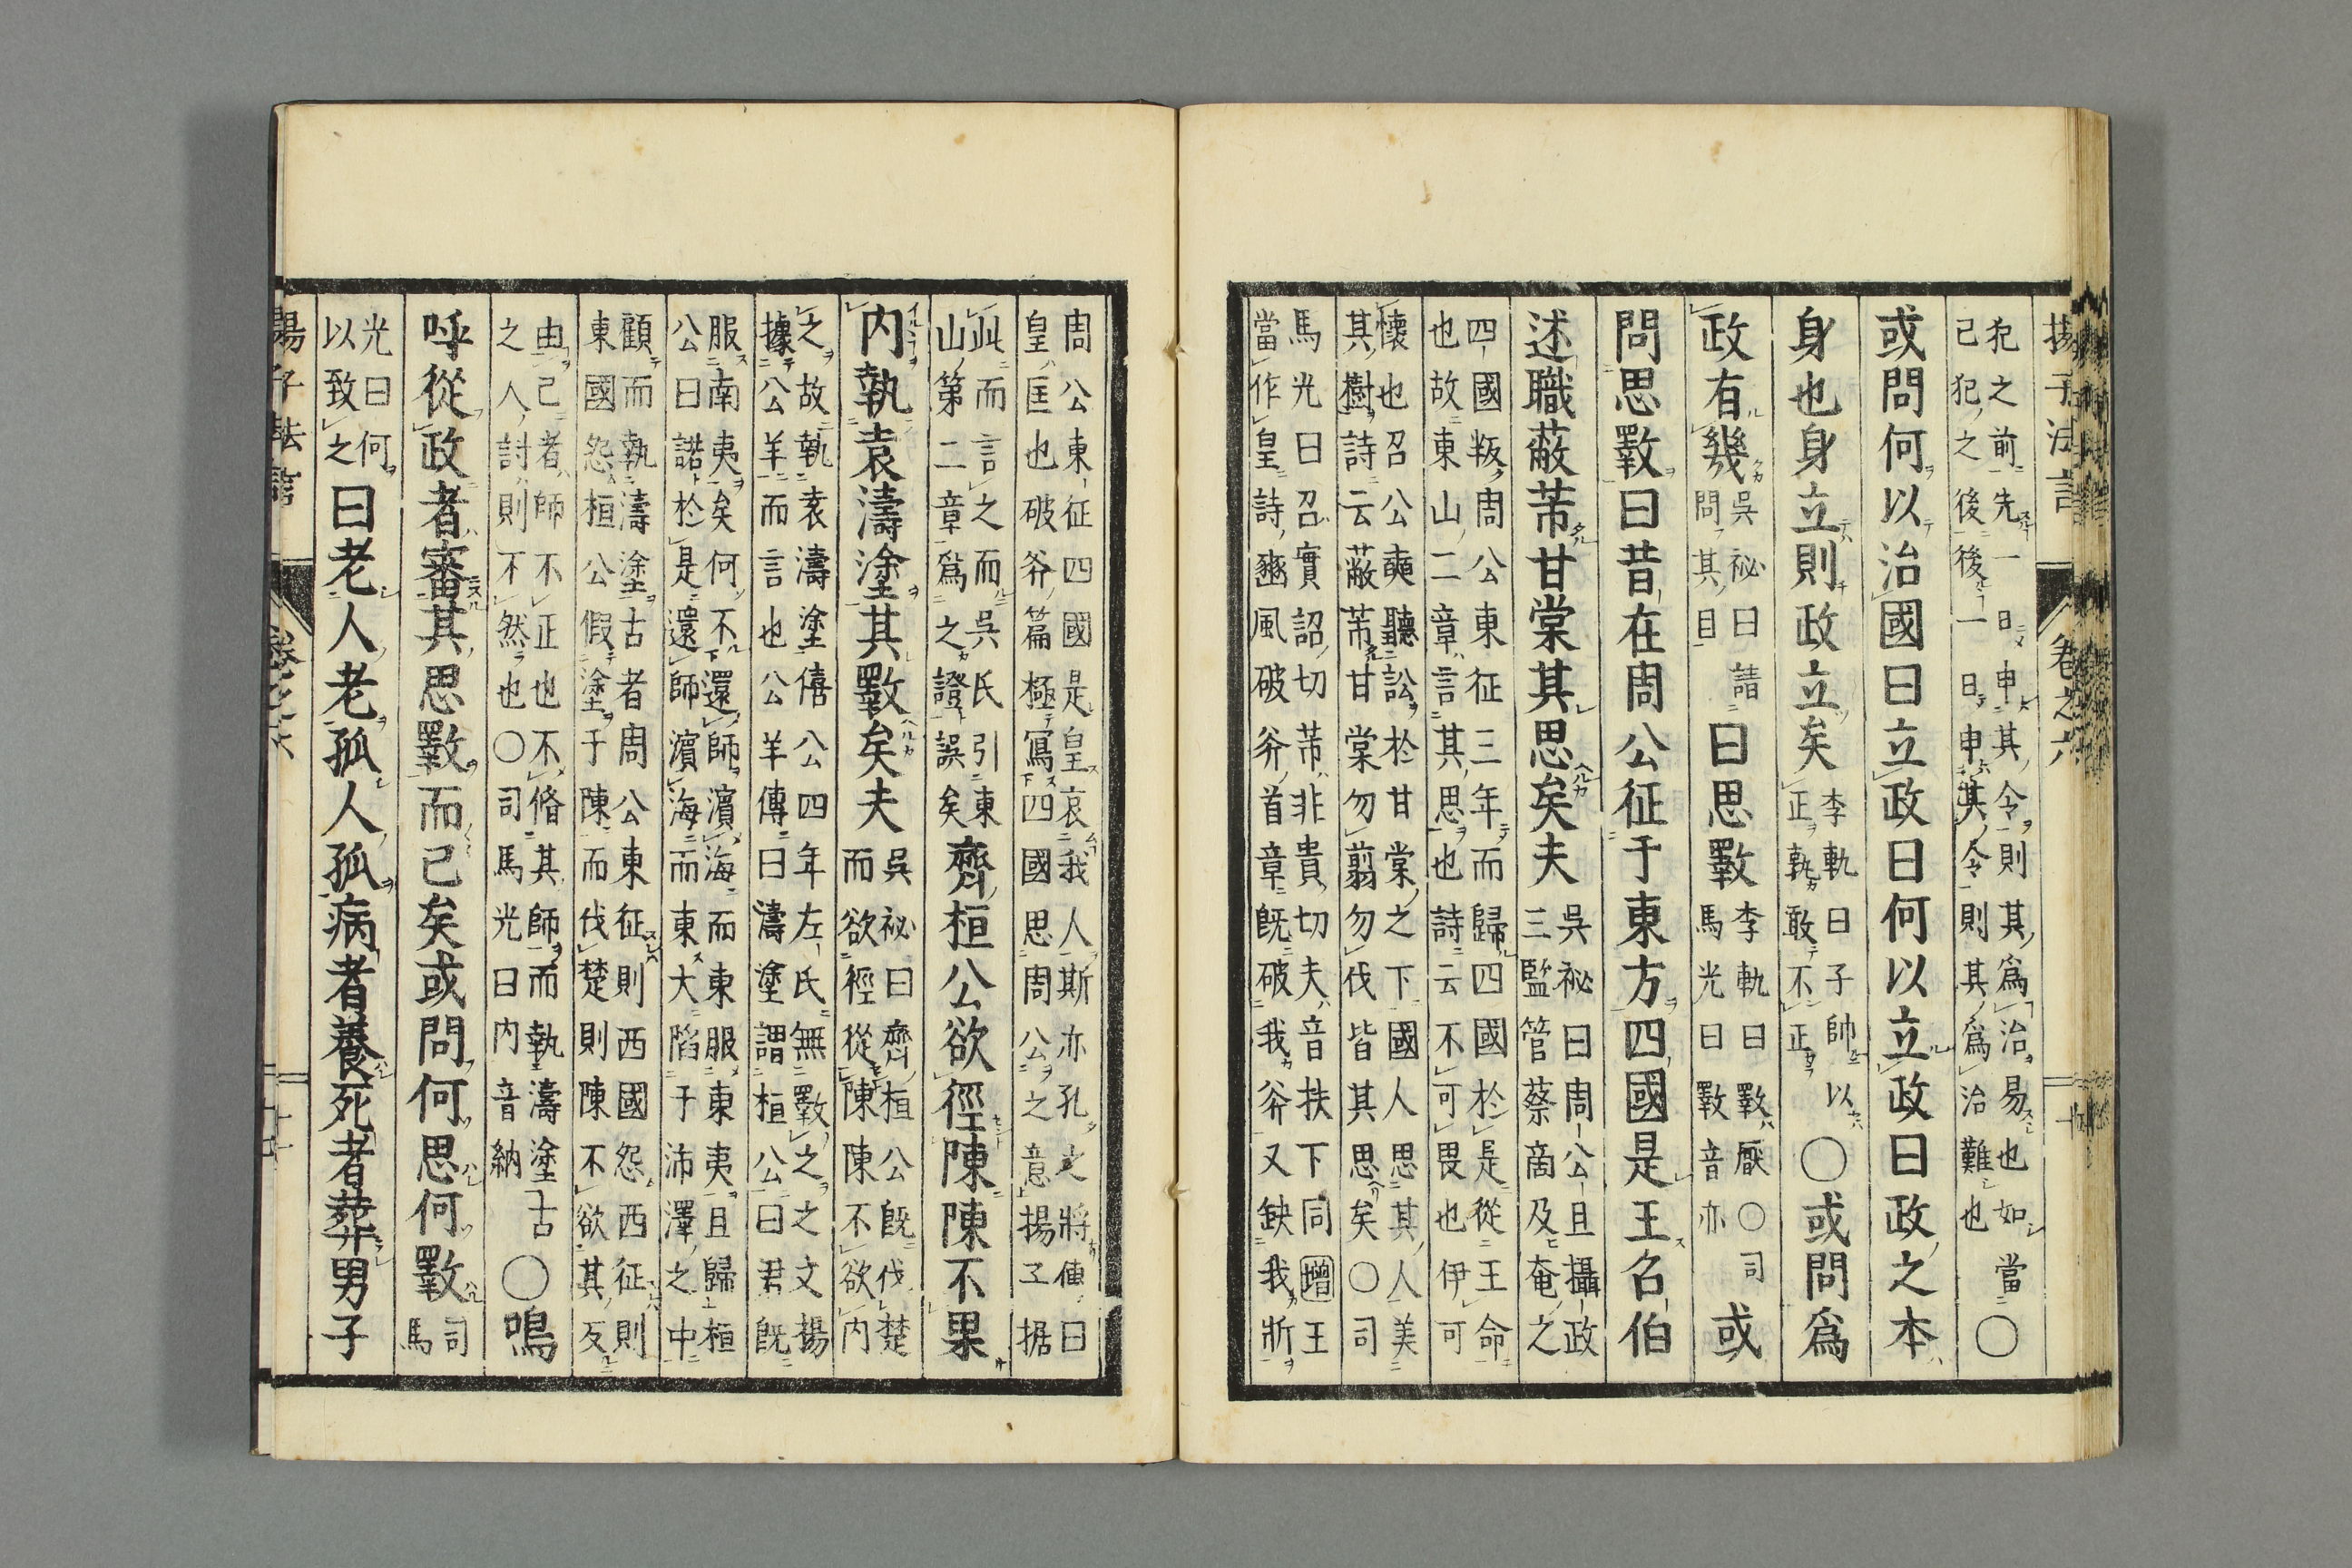 揚子法言 卷之六
犯之前先一日申其令則其爲治易也如當
已犯之後後一日申其令則其爲治難也○
或問何以治國曰立政曰何以立政曰政之本
身也身立則政立矣李軌曰子帥以
正孰敢不正○或問爲
政有幾吳祕曰詰
問其目曰思斁李軌曰斁厭○司
馬光曰斁音亦或
問思斁曰昔在周公征于東方四國是王召伯
述職蔽芾甘棠其思矣夫吳祕曰周公且攝政
三監管蔡商及奄之
四國叛周公東征三年而歸四國於是從王命
也故東山二章言其思也詩云不可畏也伊可
懷也召公奭聽訟於甘棠之下國人思其人美
其樹詩云蔽芾甘棠勿翦勿伐皆其思矣○司
馬光曰召實詔切芾非貴切夫音扶下同增王
當作皇詩豳風破斧首章既破我斧又缺我斨
周公東征四國是皇哀我人斯亦孔之將傳曰
皇匡也破斧篇極寫四國思周公之意揚子据
此而言之而吳氏引東
山第二章爲之證誤矣齊桓公欲徑陳陳不果
内執袁濤塗其斁矣夫吳祕曰齊桓公既伐楚
而欲徑從陳陳不欲内
之故執袁濤塗僖公四年左氏無斁之之文揚
據公羊而言也公羊傳曰濤塗謂桓公曰君既
服南夷矣何不還師濱海而東服東夷且歸桓
公曰諾於是還師濱海而東大陷于沛澤之中
顧而執濤塗古者周公東征則西國怨西征則
東國怨桓公假塗于陳而伐楚則陳不欲其反
由己者師不正也不脩其師而執濤塗古
之人討則不然也○司馬光曰内音納○嗚
呼從政者審其思斁而已矣或問何思何斁司
馬
光曰何
以致之曰老人老孤人孤病者養死者葬男子